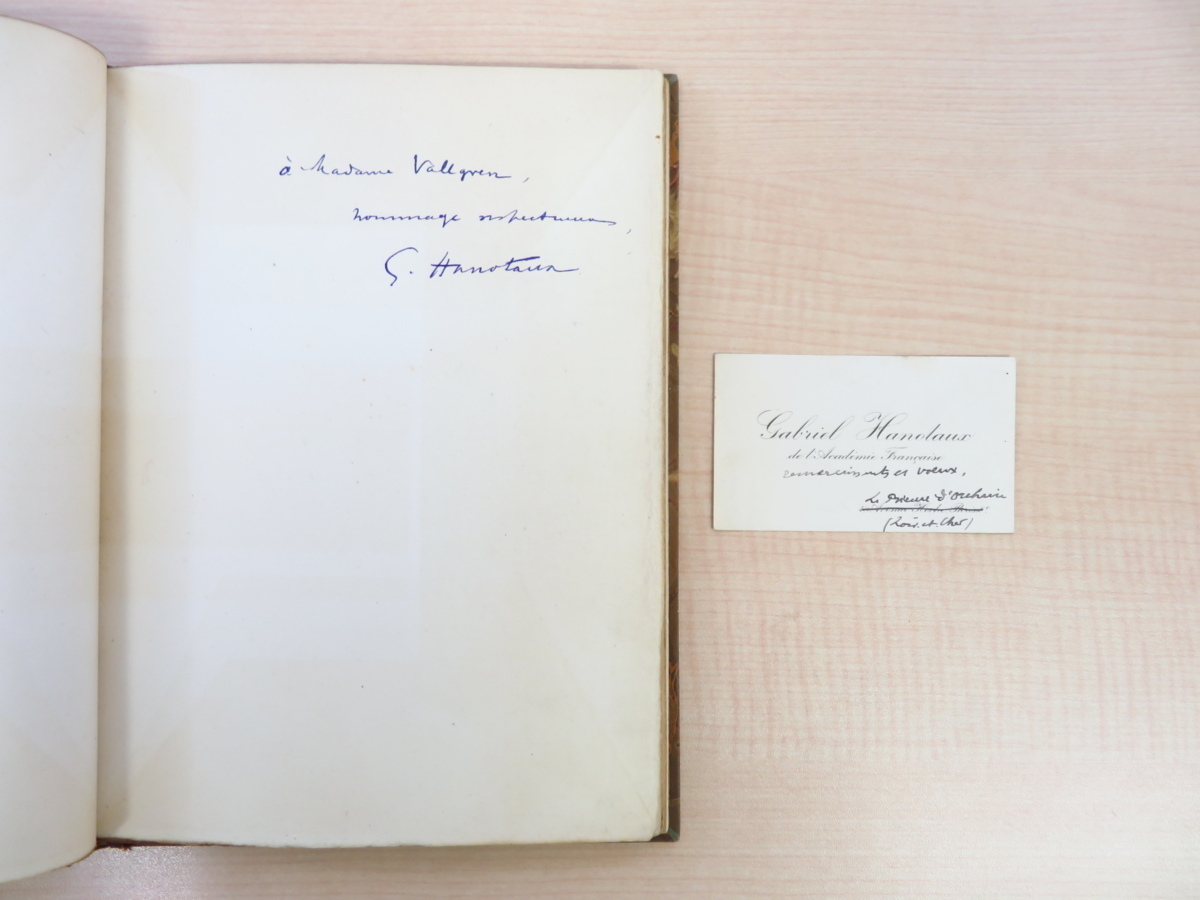 à Madame Vallgren,
hommage respectueux,
G. Hanotaux
Gabriel Hanotaux
de l'Académie Française
remerciements et voeux,
Le Prieuré d'Orchaise
(Loir-et-Cher)